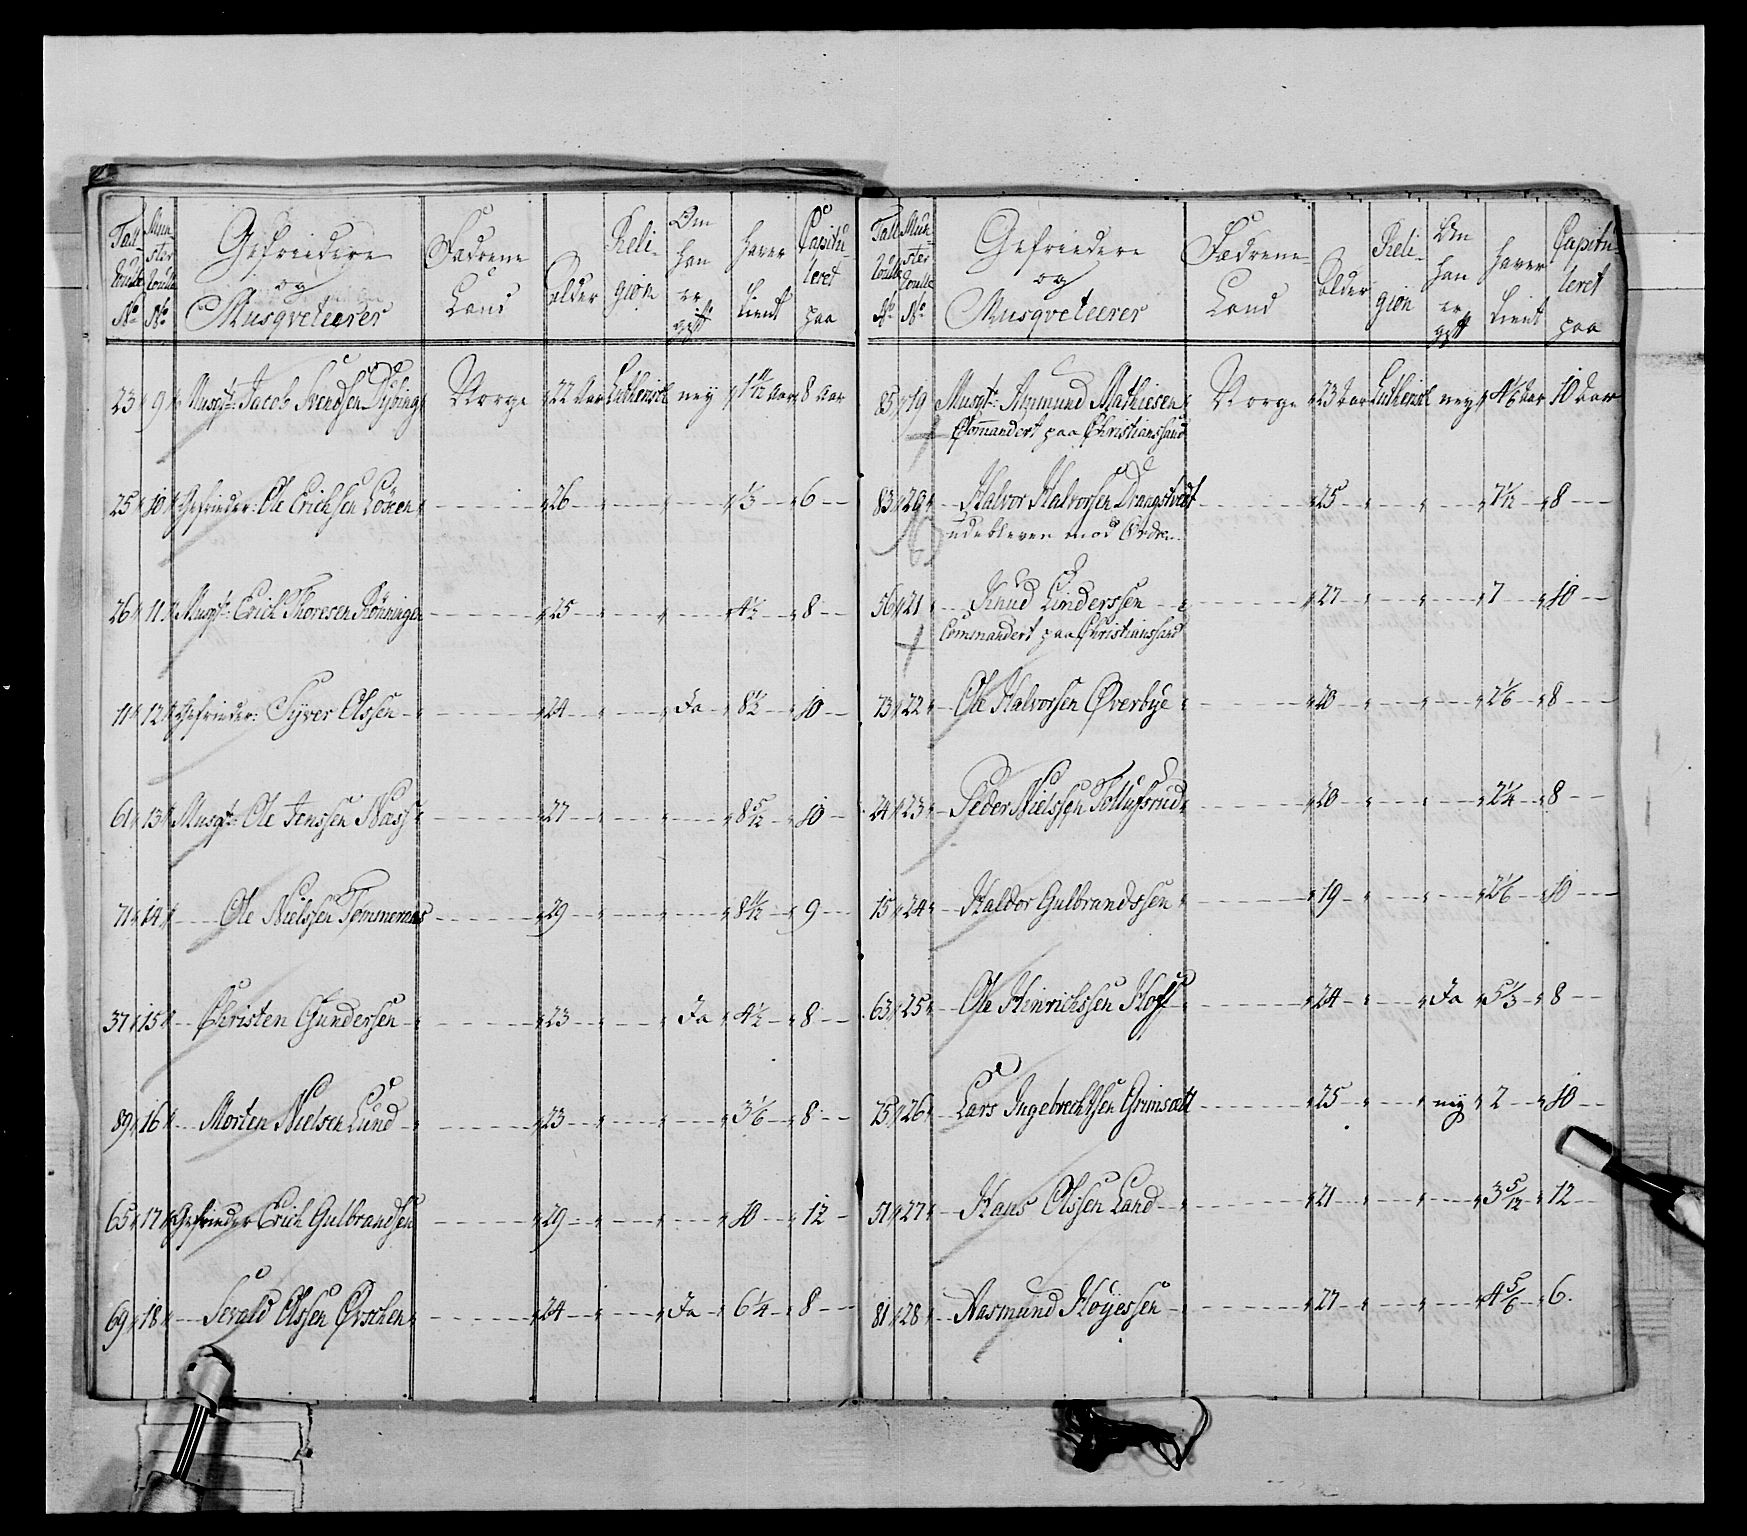 Tall Roulle No | Mun- ster Roulle No | Gefriedere og Musqveteerer | Fædrene Land | Alder | Reli- gion | Om han er gift | haver tient | Capitu- leret paa
23 | 9 | Musqt: Jacob Svendsen Dybing | Norge | 22 Aar | Luthersk | ney | 1 11/12 Aar | 8 Aar
25 | 10 | Gefrieder: Ole Erichsen | 26 | 1/3 | 6
26 | 11 | Musqt: Erich Thoresen Rønningen | 25 | 4 1/2 | 8
11 | 12 | Gefrieder: Syver Olssen | 24 | Ja | 8 1/2 | 10
61 | 13 | Musqt: Ole Jenssen Næss | 27 | 8 5/12 | 10
71 | 14 | Ole Nielssen Tømmeraas | 29 | 8 11/12 | 9
37 | 15 | Christen Gundersen | 23 | Ja | 4 1/2 | 8
89 | 16 | Morten Nielsen Lund | 23 | 3 1/6 | 8
65 | 17 | Gefrieder Erich Gulbrandsen | 29 | 10 | 12
69 | 18 | Olssen | 24 | Ja | 6 1/4 | 8
Tall Roulle No | Mun- ster Roulle No | Gefriedere og Musqveteerer | Fædrene Land | Alder | Reli- gion | Om han er gift | haver tient | Capitu- leret paa
85 | 19 | Musqt: Mathiesen | Norge | 23 Aar | Luthersk | ney | 4 1/6 Aar | 10 Aar
Commandert paa Christianssand
83 | 20 | Halvor Halvorsen Drangstvedt | 25 | 7 1/2 | 8
udebleven mod Ordre
56 | 21 | Knud Linderssen | 27 | 7 | 10
Commandert paa Christianssand
73 | 22 | Ole Halvorsen Øverbye | 20 | 2 1/6 | 8
24 | 23 | Peder Nielssen Tollufsrud | 20 | 2 1/4 | 8
15 | 24 | Haldor Gulbrandssen | 19 | 2 1/6 | 10
63 | 25 | Ole Hinrichssen Hoff | 24 | Ja | 5 1/3 | 8
75 | 26 | Lars Ingebrechtsen Grimsætt | 25 | ney | 2 | 10
51 | 27 | Hans Olssen Land | 21 | 3 5/12 | 12
81 | 28 | Aasmund Høyessen | 27 | 4 5/6 | 6